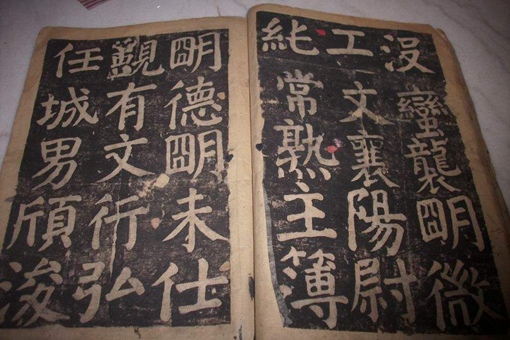 没蠻襲明微
工文襄陽尉
純常熟主簿
明德明未仕
有文行弘
任城男頎浚